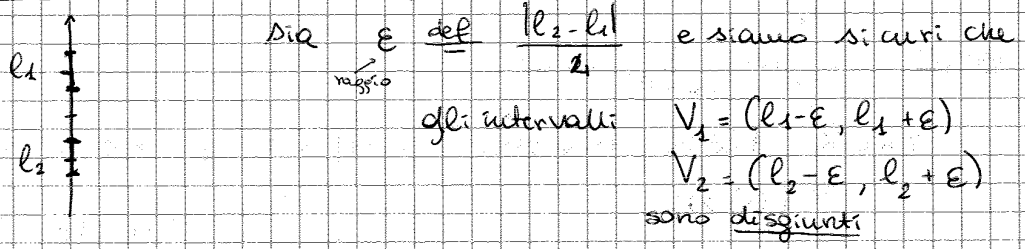 Sia ε def |l₂ - l₁| / 2 e siamo sicuri che
raggio
l₁
gli intervalli V₁ = (l₁-ε, l₁+ε)
l₂
V₂ = (l₂-ε, l₂+ε)
sono disgiunti